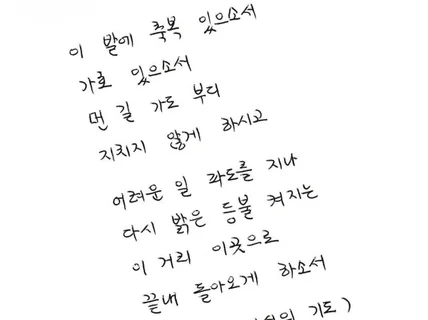 이 발에 축복 있으소서
가호 있으소서
먼 길 가도 부디
지치지 않게 하시고
어려운 일 파도를 지나
다시 밝은 등불 켜지는
이 거리 이곳으로
끝내 돌아오게 하소서
기도)